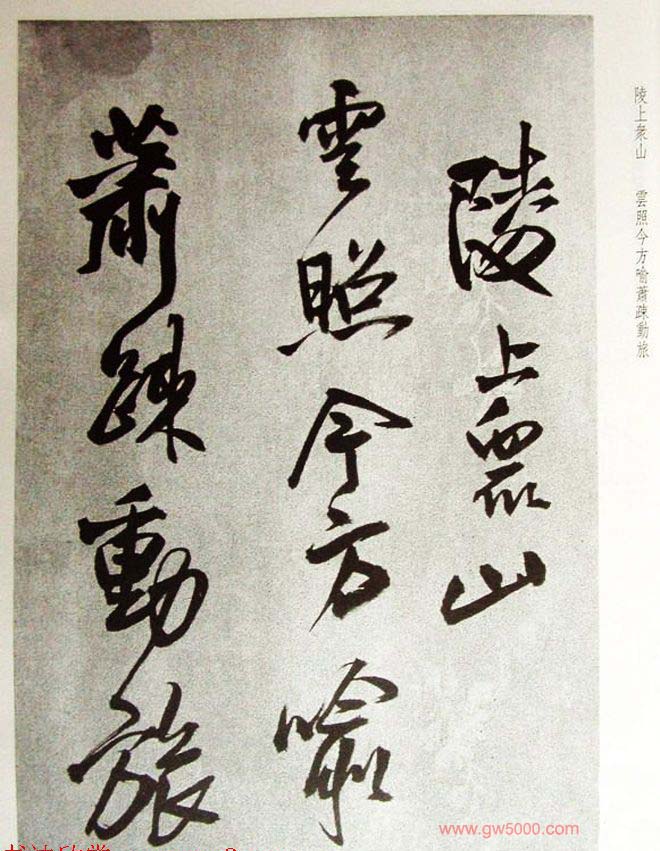 陵上衆山　雲照今方喻蕭疎動旅
陵上衆山
雲照今方喻
蕭疎動旅
www.gw5000.com